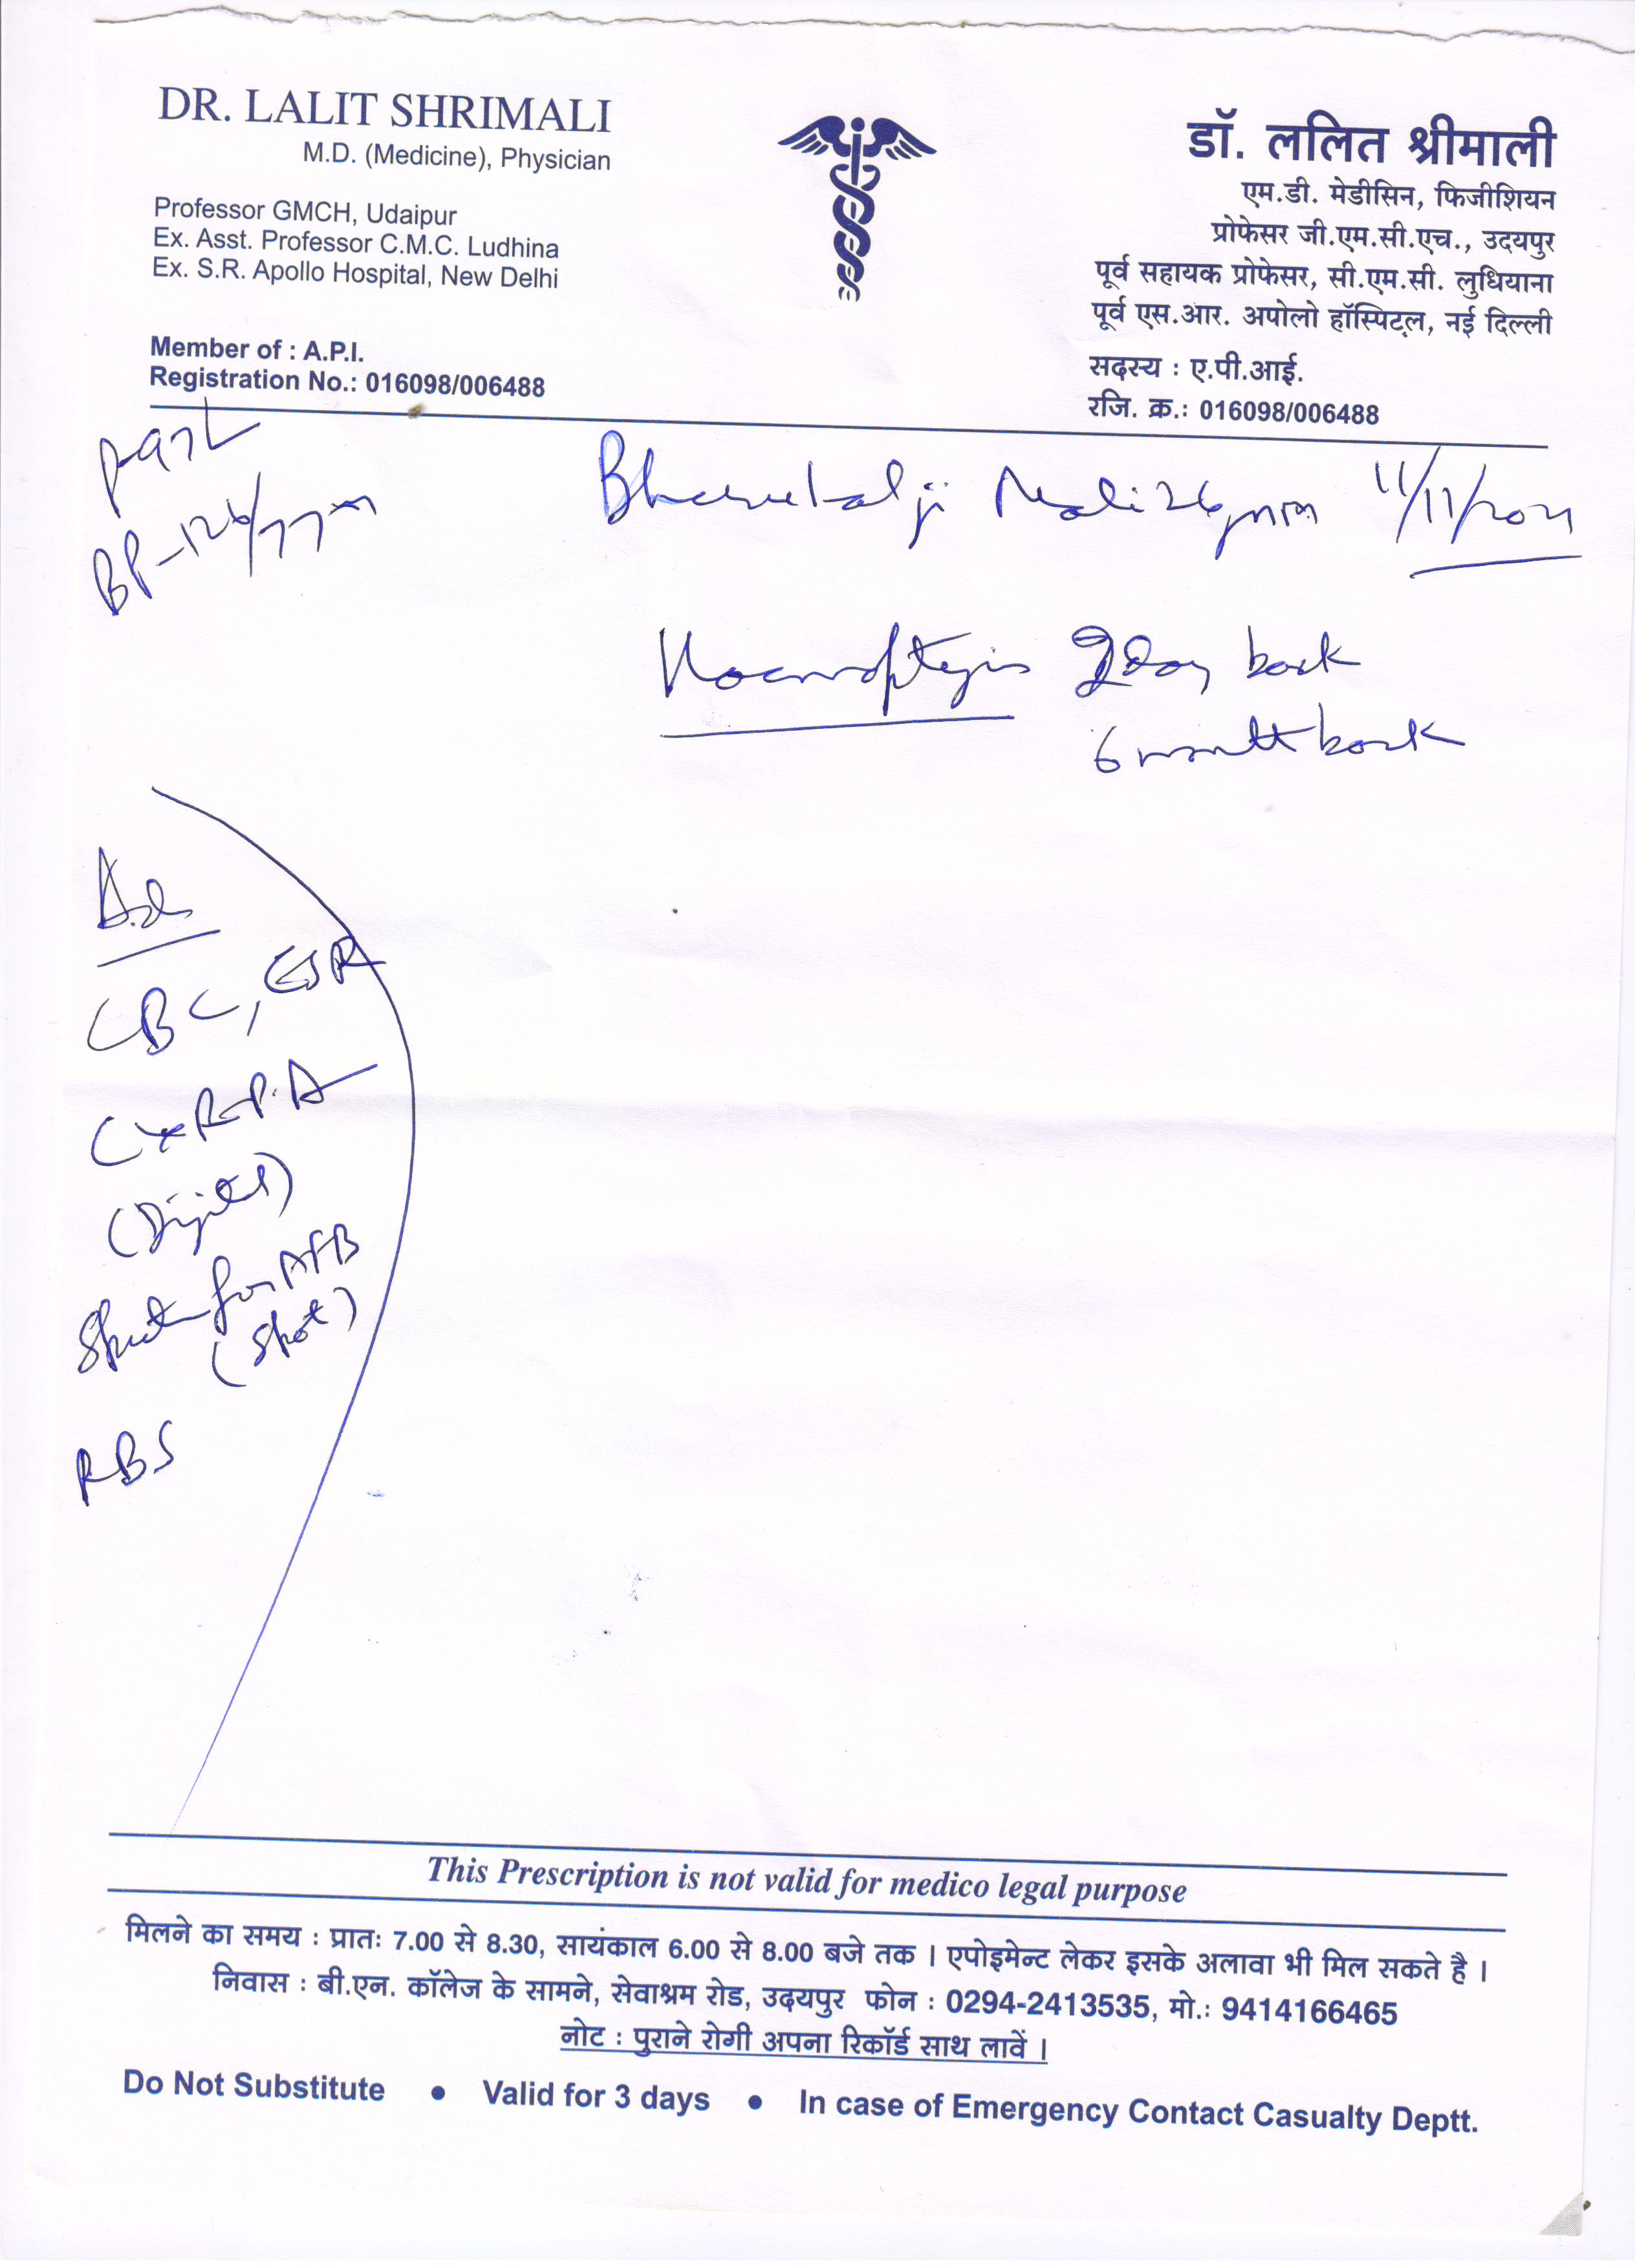 DR. LALIT SHRIMALI
M.D. (Medicine), Physician
Professor GMCH, Udaipur
Ex. Asst. Professor C.M.C. Ludhina
Ex. S.R. Apollo Hospital, New Delhi
Member of : A.P.I.
Registration No.: 016098/006488
डॉ. ललित श्रीमाली
एम.डी. मेडीसिन, फिजीशियन
प्रोफेसर जी.एम.सी.एच., उदयपुर
पूर्व सहायक प्रोफेसर, सी.एम.सी. लुधियाना
पूर्व एस.आर. अपोलो हॉस्पिटल, नई दिल्ली
सदस्य : ए.पी.आई.
रजि. क्र.: 016098/006488
BP-126/77
ji Mali 26 11/11/2021
Haemoptysis 2 day back
6 month back
CBC, ESR
CxR P.A
(Digital)
Sputum for AFB
(Spot)
RBS
This Prescription is not valid for medico legal purpose
मिलने का समय : प्रातः 7.00 से 8.30, सायंकाल 6.00 से 8.00 बजे तक । एपोइमेन्ट लेकर इसके अलावा भी मिल सकते है ।
निवास : बी.एन. कॉलेज के सामने, सेवाश्रम रोड, उदयपुर फोन : 0294-2413535, मो.: 9414166465
नोट : पुराने रोगी अपना रिकॉर्ड साथ लावें ।
Do Not Substitute • Valid for 3 days • In case of Emergency Contact Casualty Deptt.